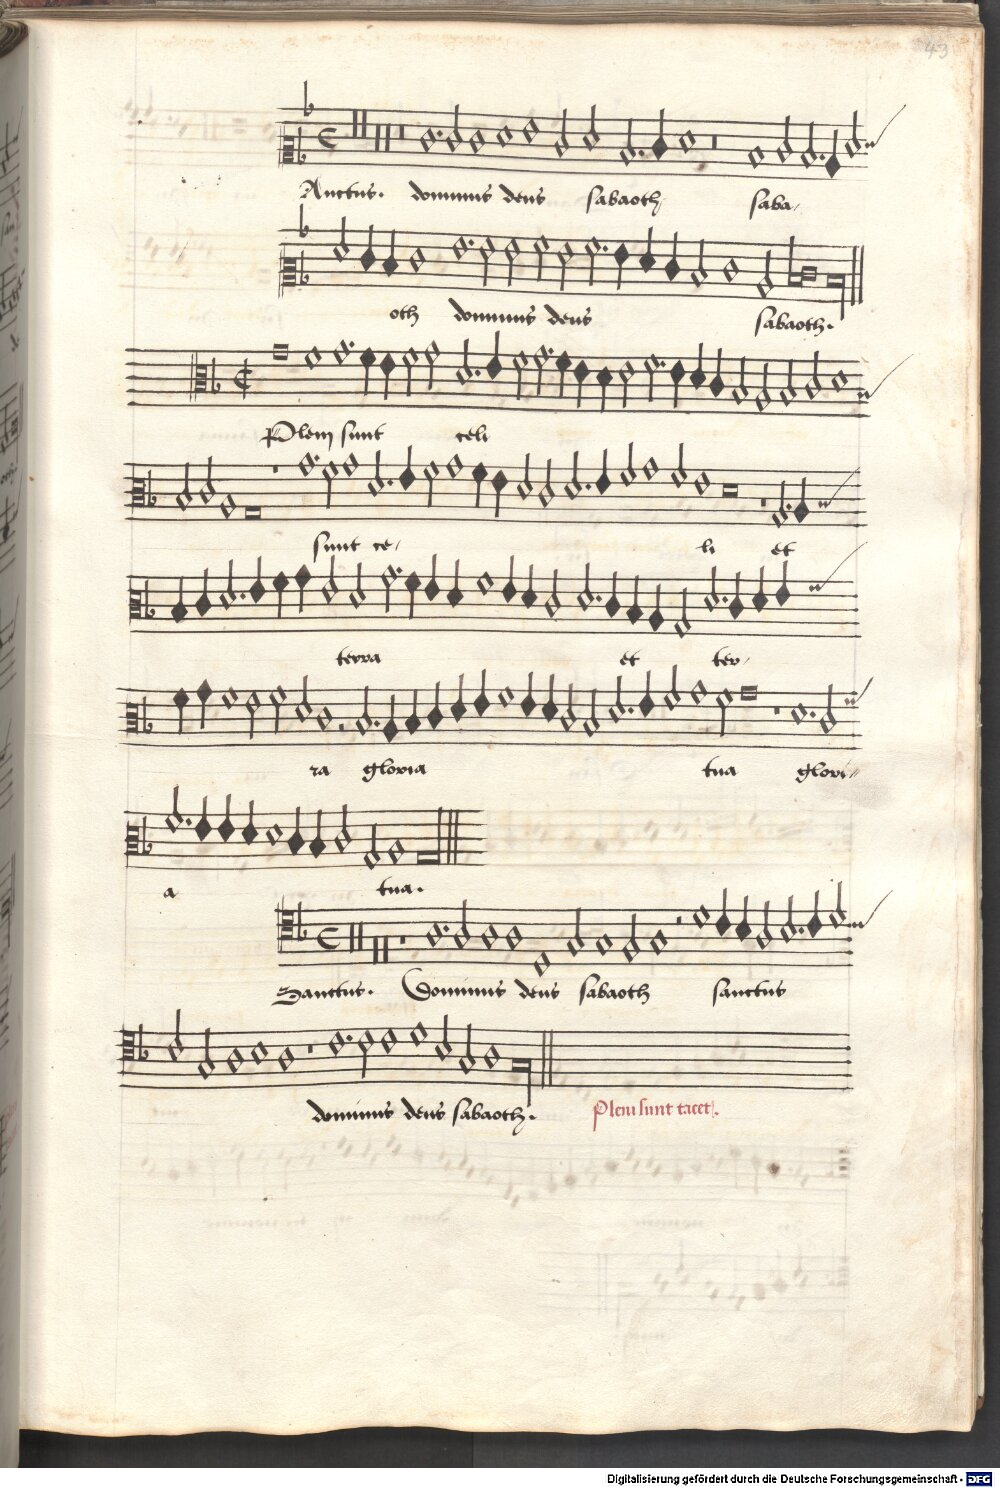 43
Anctus. dominus deus sabaoth saba-
oth dominus deus sabaoth.
Pleni sunt celi
sunt ce- li et
terra et ter-
ra gloria tua glori-
a tua.
Sanctus. Dominus deus sabaoth sanctus
dominus deus sabaoth. Pleni sunt tacet.
Digitalisierung gefördert durch die Deutsche Forschungsgemeinschaft - DFG